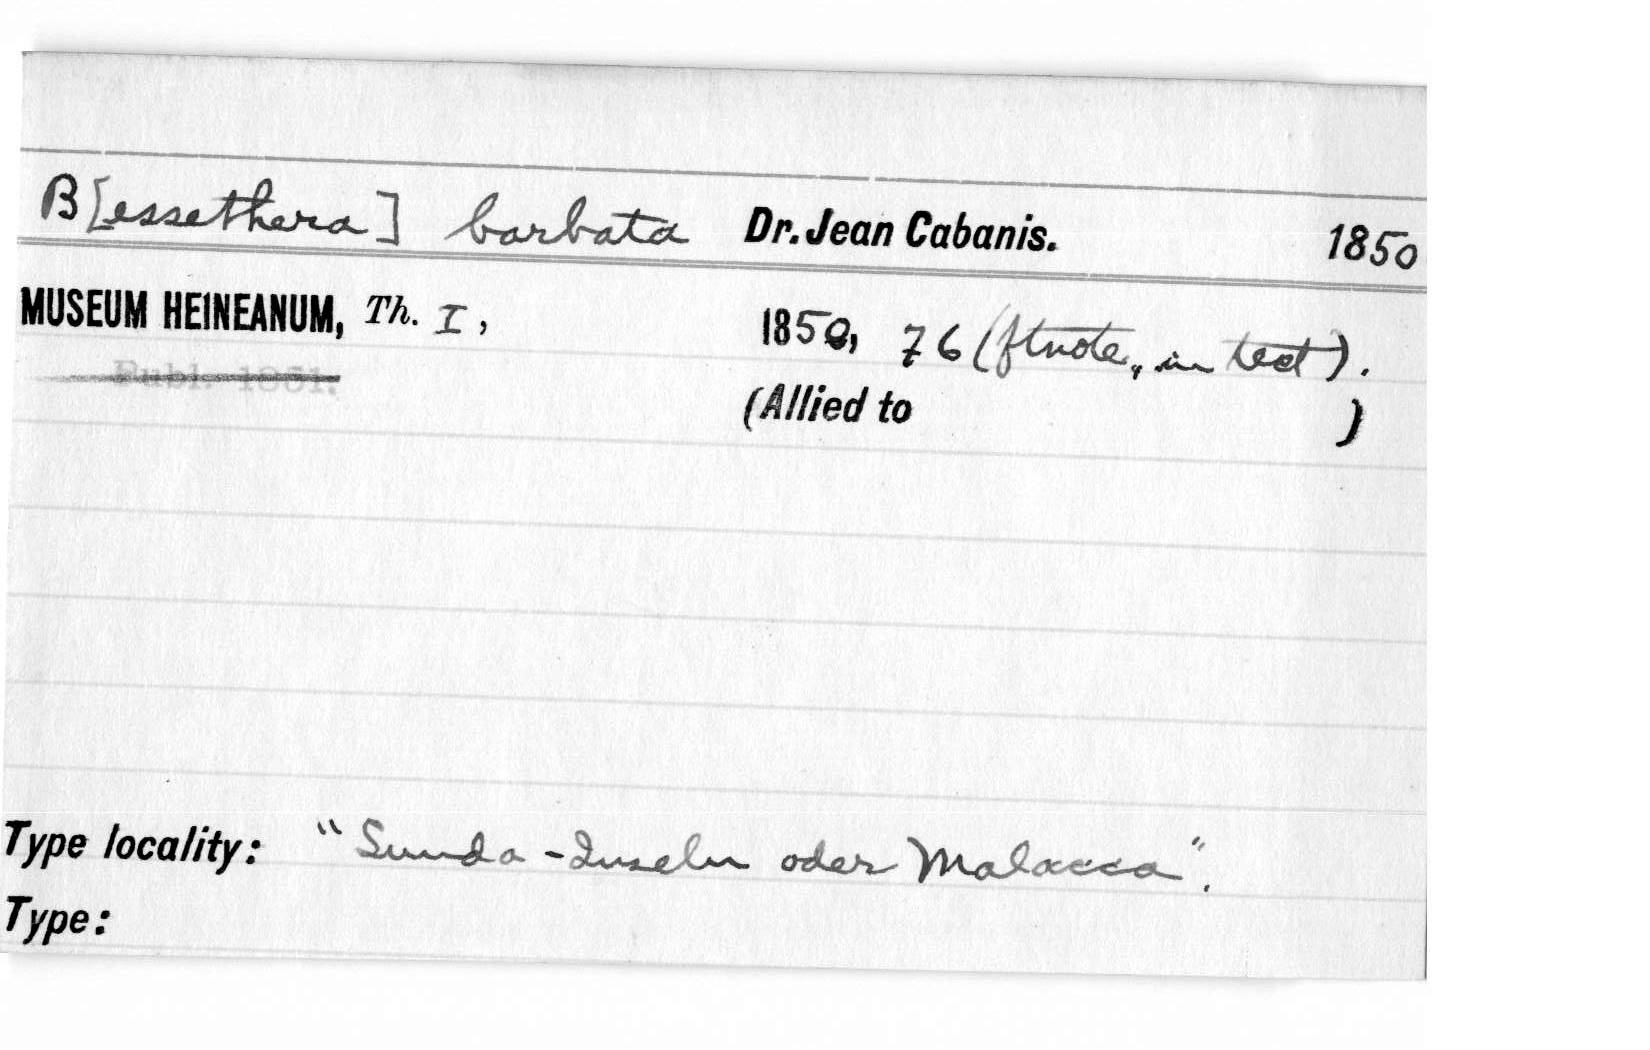 B[essethera] barbata Dr. Jean Cabanis. 1850
MUSEUM HEINEANUM, Th. I, 1850, 76 (ftnote, in text).
Publ. 1851.
(Allied to )
Type locality: "Sunda-Inseln oder Malacca".
Type: